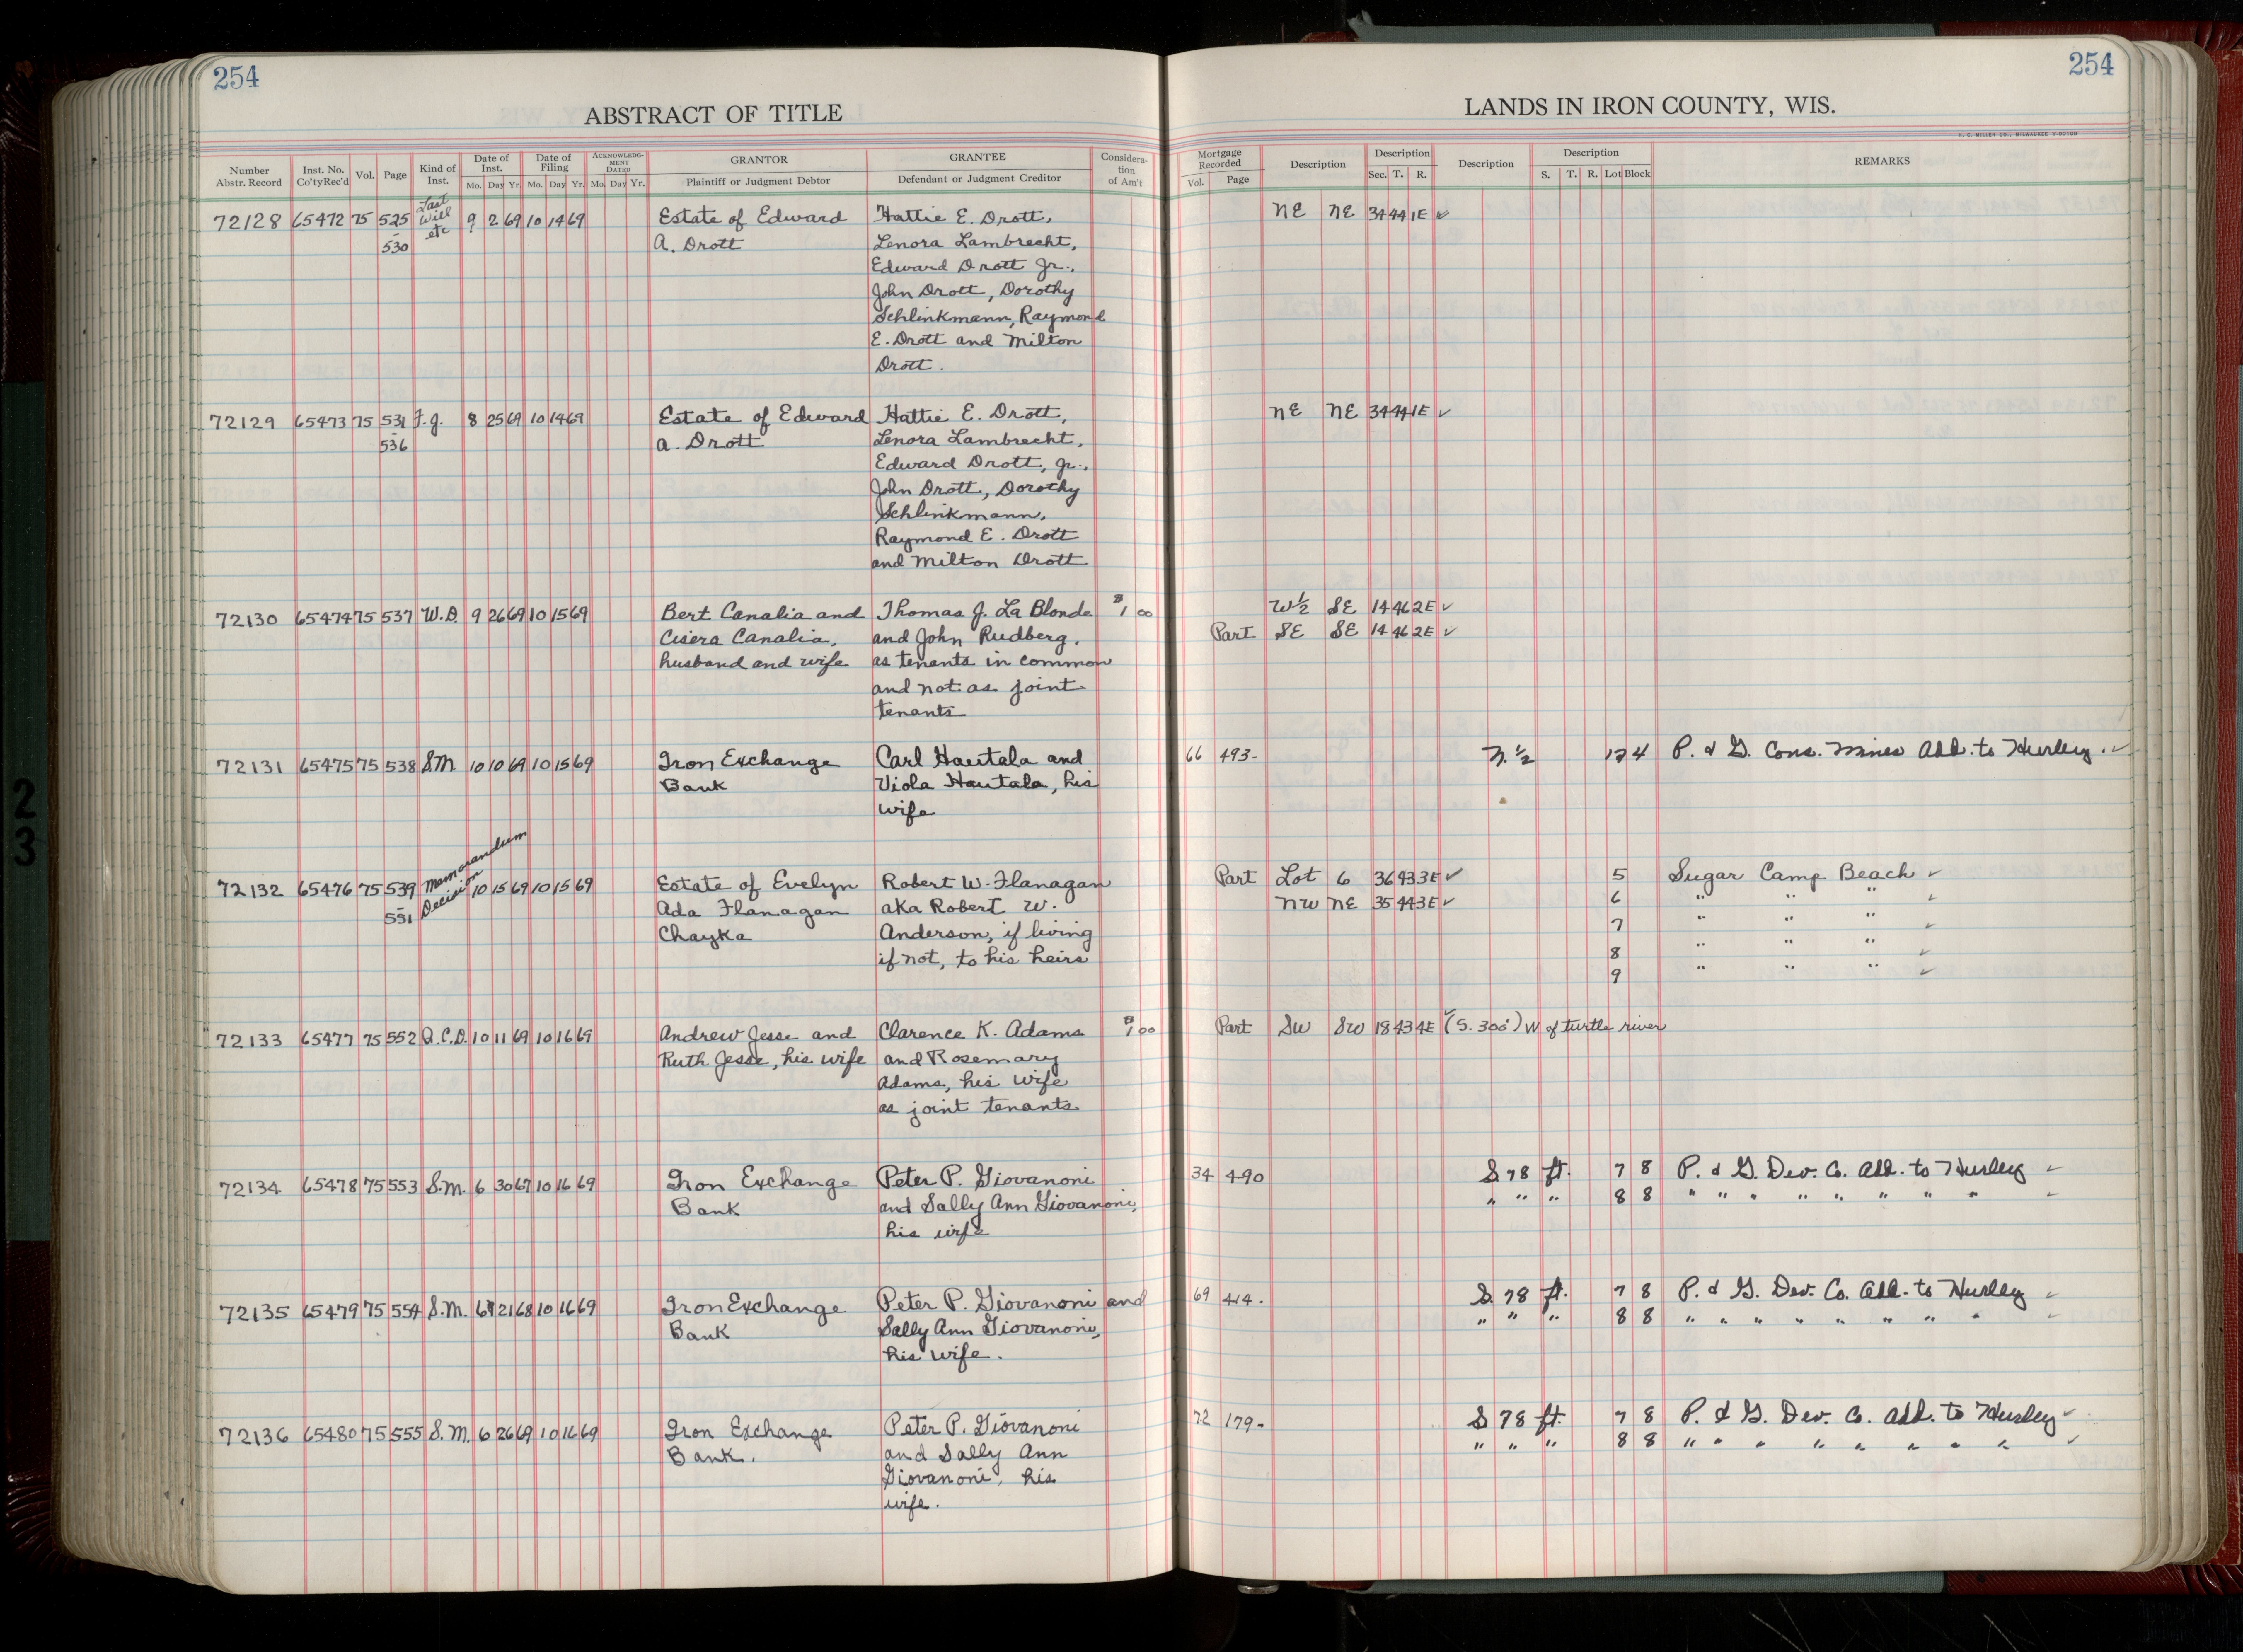 254
254
ABSTRACT OF TITLE
LANDS IN IRON COUNTY, WIS.
H. C. MILLER CO., MILWAUKEE
Number Abstr. Record | Inst. No. Co'ty Rec'd | Vol. | Page | Kind of Inst. | Date of Inst. Mo. Day Yr. | Date of Filing Mo. Day Yr. | ACKNOWLEDGMENT DATED Mo. Day Yr. | GRANTOR Plaintiff or Judgment Debtor | GRANTEE Defendant or Judgment Creditor | Consideration of Am't
Mortgage Recorded Vol. Page | Description | Description Sec. T. R. | Description | Description S. T. R. Lot Block | REMARKS
72128 65472 75 525 - 530 Last Will etc 9 2 69 10 14 69 Estate of Edward Hattie E. Drott, NE NE 34 44 1E ✓
A. Drott Lenora Lambrecht,
Edward Drott Jr.,
John Drott, Dorothy
Schlinkmann, Raymond
E. Drott and Milton
Drott.
72129 65473 75 531 - 536 F.J. 8 25 69 10 14 69 Estate of Edward Hattie E. Drott, NE NE 34 44 1E ✓
A. Drott Lenora Lambrecht,
Edward Drott, Jr.,
John Drott, Dorothy
Schlinkmann,
Raymond E. Drott
and Milton Drott
72130 65474 75 537 W.D. 9 26 69 10 15 69 Bert Canalia and Thomas J. La Blonde $1 00 W½ SE 14 46 2E ✓
Cisera Canalia, and John Rudberg, Part SE SE 14 46 2E ✓
husband and wife as tenants in common
and not as joint
tenants
72131 65475 75 538 S.M. 10 10 69 10 15 69 Iron Exchange Carl Hautala and 66 493- N.½ 17 4 P. & G. Cons. Mines Add. to Hurley. ✓
Bank Viola Hautala, his
wife
72132 65476 75 539 - 551 Memorandum Decision 10 15 69 10 15 69 Estate of Evelyn Robert W. Flanagan Part Lot 6 36 43 3E ✓ 5 Sugar Camp Beach ✓
Ada Flanagan aka Robert W. NW NE 35 44 3E ✓ 6 " " " ✓
Chayka Anderson, if living 7 " " " ✓
if not, to his heirs 8 " " " ✓
9 " " " ✓
72133 65477 75 552 Q.C.D. 10 11 69 10 16 69 Andrew Jesse and Clarence K. Adams $1 00 Part SW SW 18 43 4E ✓ (S. 300') W of turtle river
Ruth Jesse, his wife and Rosemary
Adams, his wife
as joint tenants.
72134 65478 75 553 S.M. 6 30 67 10 16 69 Iron Exchange Peter P. Giovanoni 34 490 S 78 ft. 7 8 P. & G. Dev. Co. Add. to Hurley ✓
Bank and Sally Ann Giovanoni, " " " 8 8 " " " " " " " " ✓
his wife
72135 65479 75 554 S.M. 6 21 68 10 16 69 Iron Exchange Peter P. Giovanoni and 69 414. S. 78 ft. 7 8 P. & G. Dev. Co. Add. to Hurley ✓
Bank Sally Ann Giovanoni, " " " 8 8 " " " " " " " " ✓
his wife.
72136 65480 75 555 S.M. 6 26 69 10 16 69 Iron Exchange Peter P. Giovanoni 72 179- S 78 ft. 7 8 P. & G. Dev. Co. Add. to Hurley ✓
Bank. and Sally Ann " " " 8 8 " " " " " " " " ✓
Giovanoni, his
wife.
2
3